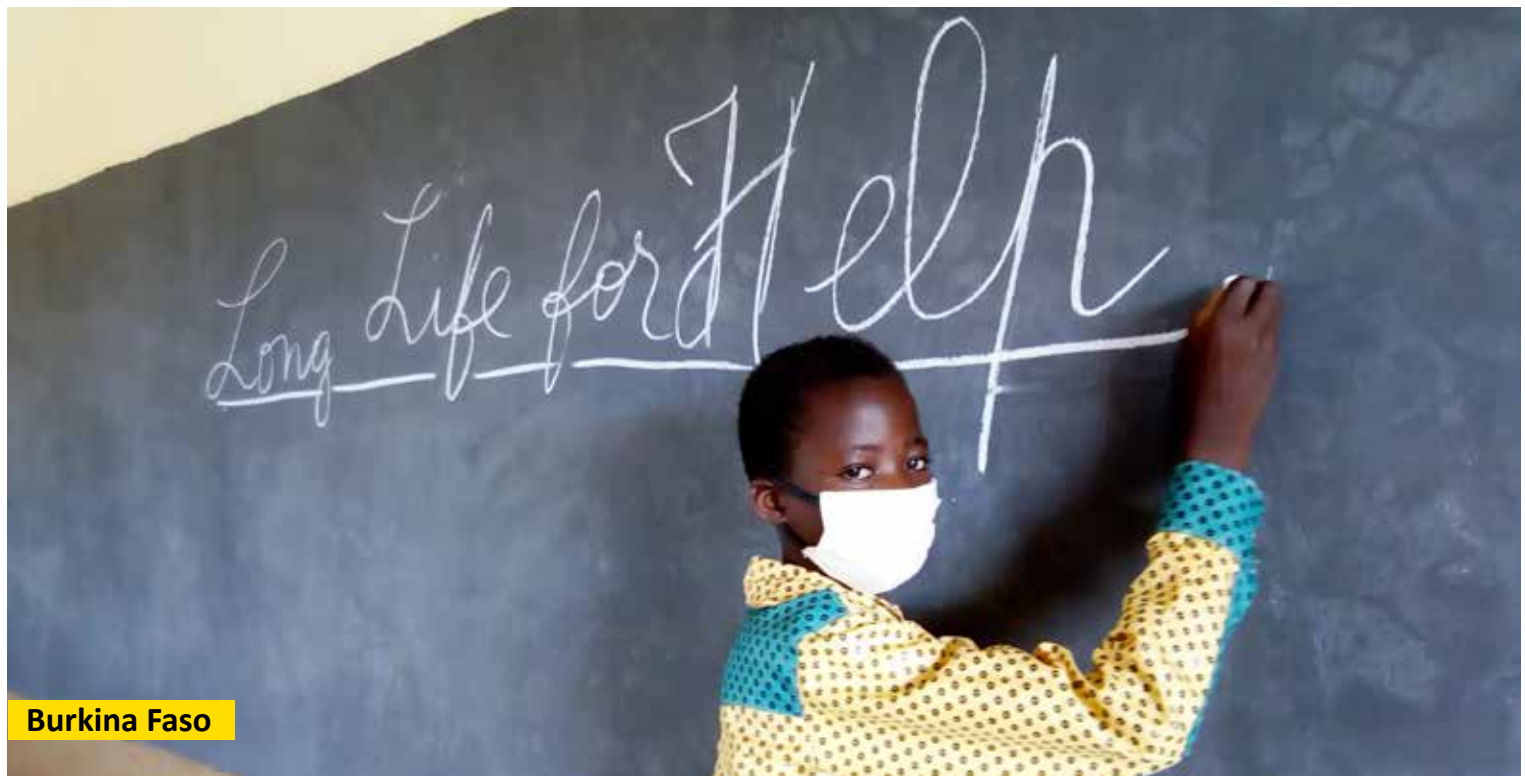 Long Life for Help
Burkina Faso